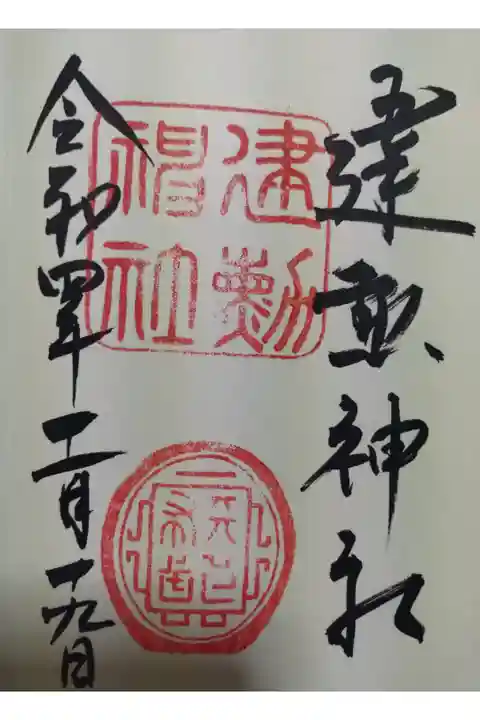 建勲神社
建勲
神社
令和四年二月十九日